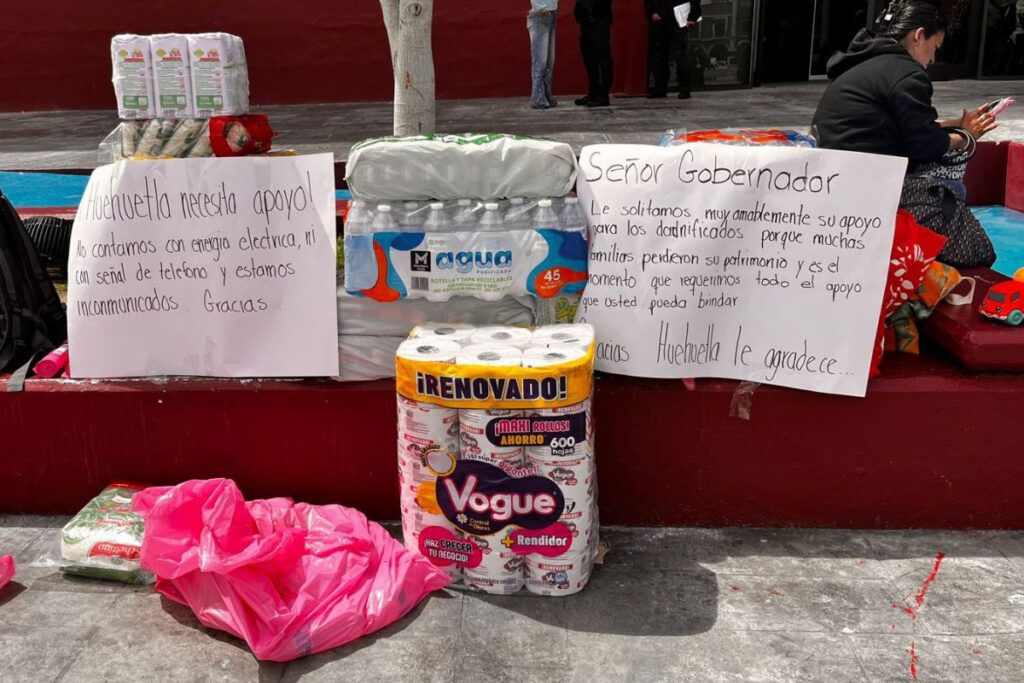 Huehuetla necesita apoyo!
No contamos con energía electrica, ni
con señal de telefono y estamos
incomunicados. Gracias.
M
agua
PURIFICADA
BOTELLA Y TAPA RECICLABLES
45
Señor Gobernador
Le solitamos muy amablemente su apoyo
para los damnificados porque muchas
familias perderon su patrimonio y es el
momento que requerimos todo el apoyo
que usted pueda brindar
Gracias Huehuetla le agradece...
¡RENOVADO!
¡MAXI ROLLOS!
AHORRO
600
hojas
¡El súper gigante!
Vogue
Control de Olores
+ Rendidor
¡HAZ CRECER
TU NEGOCIO!